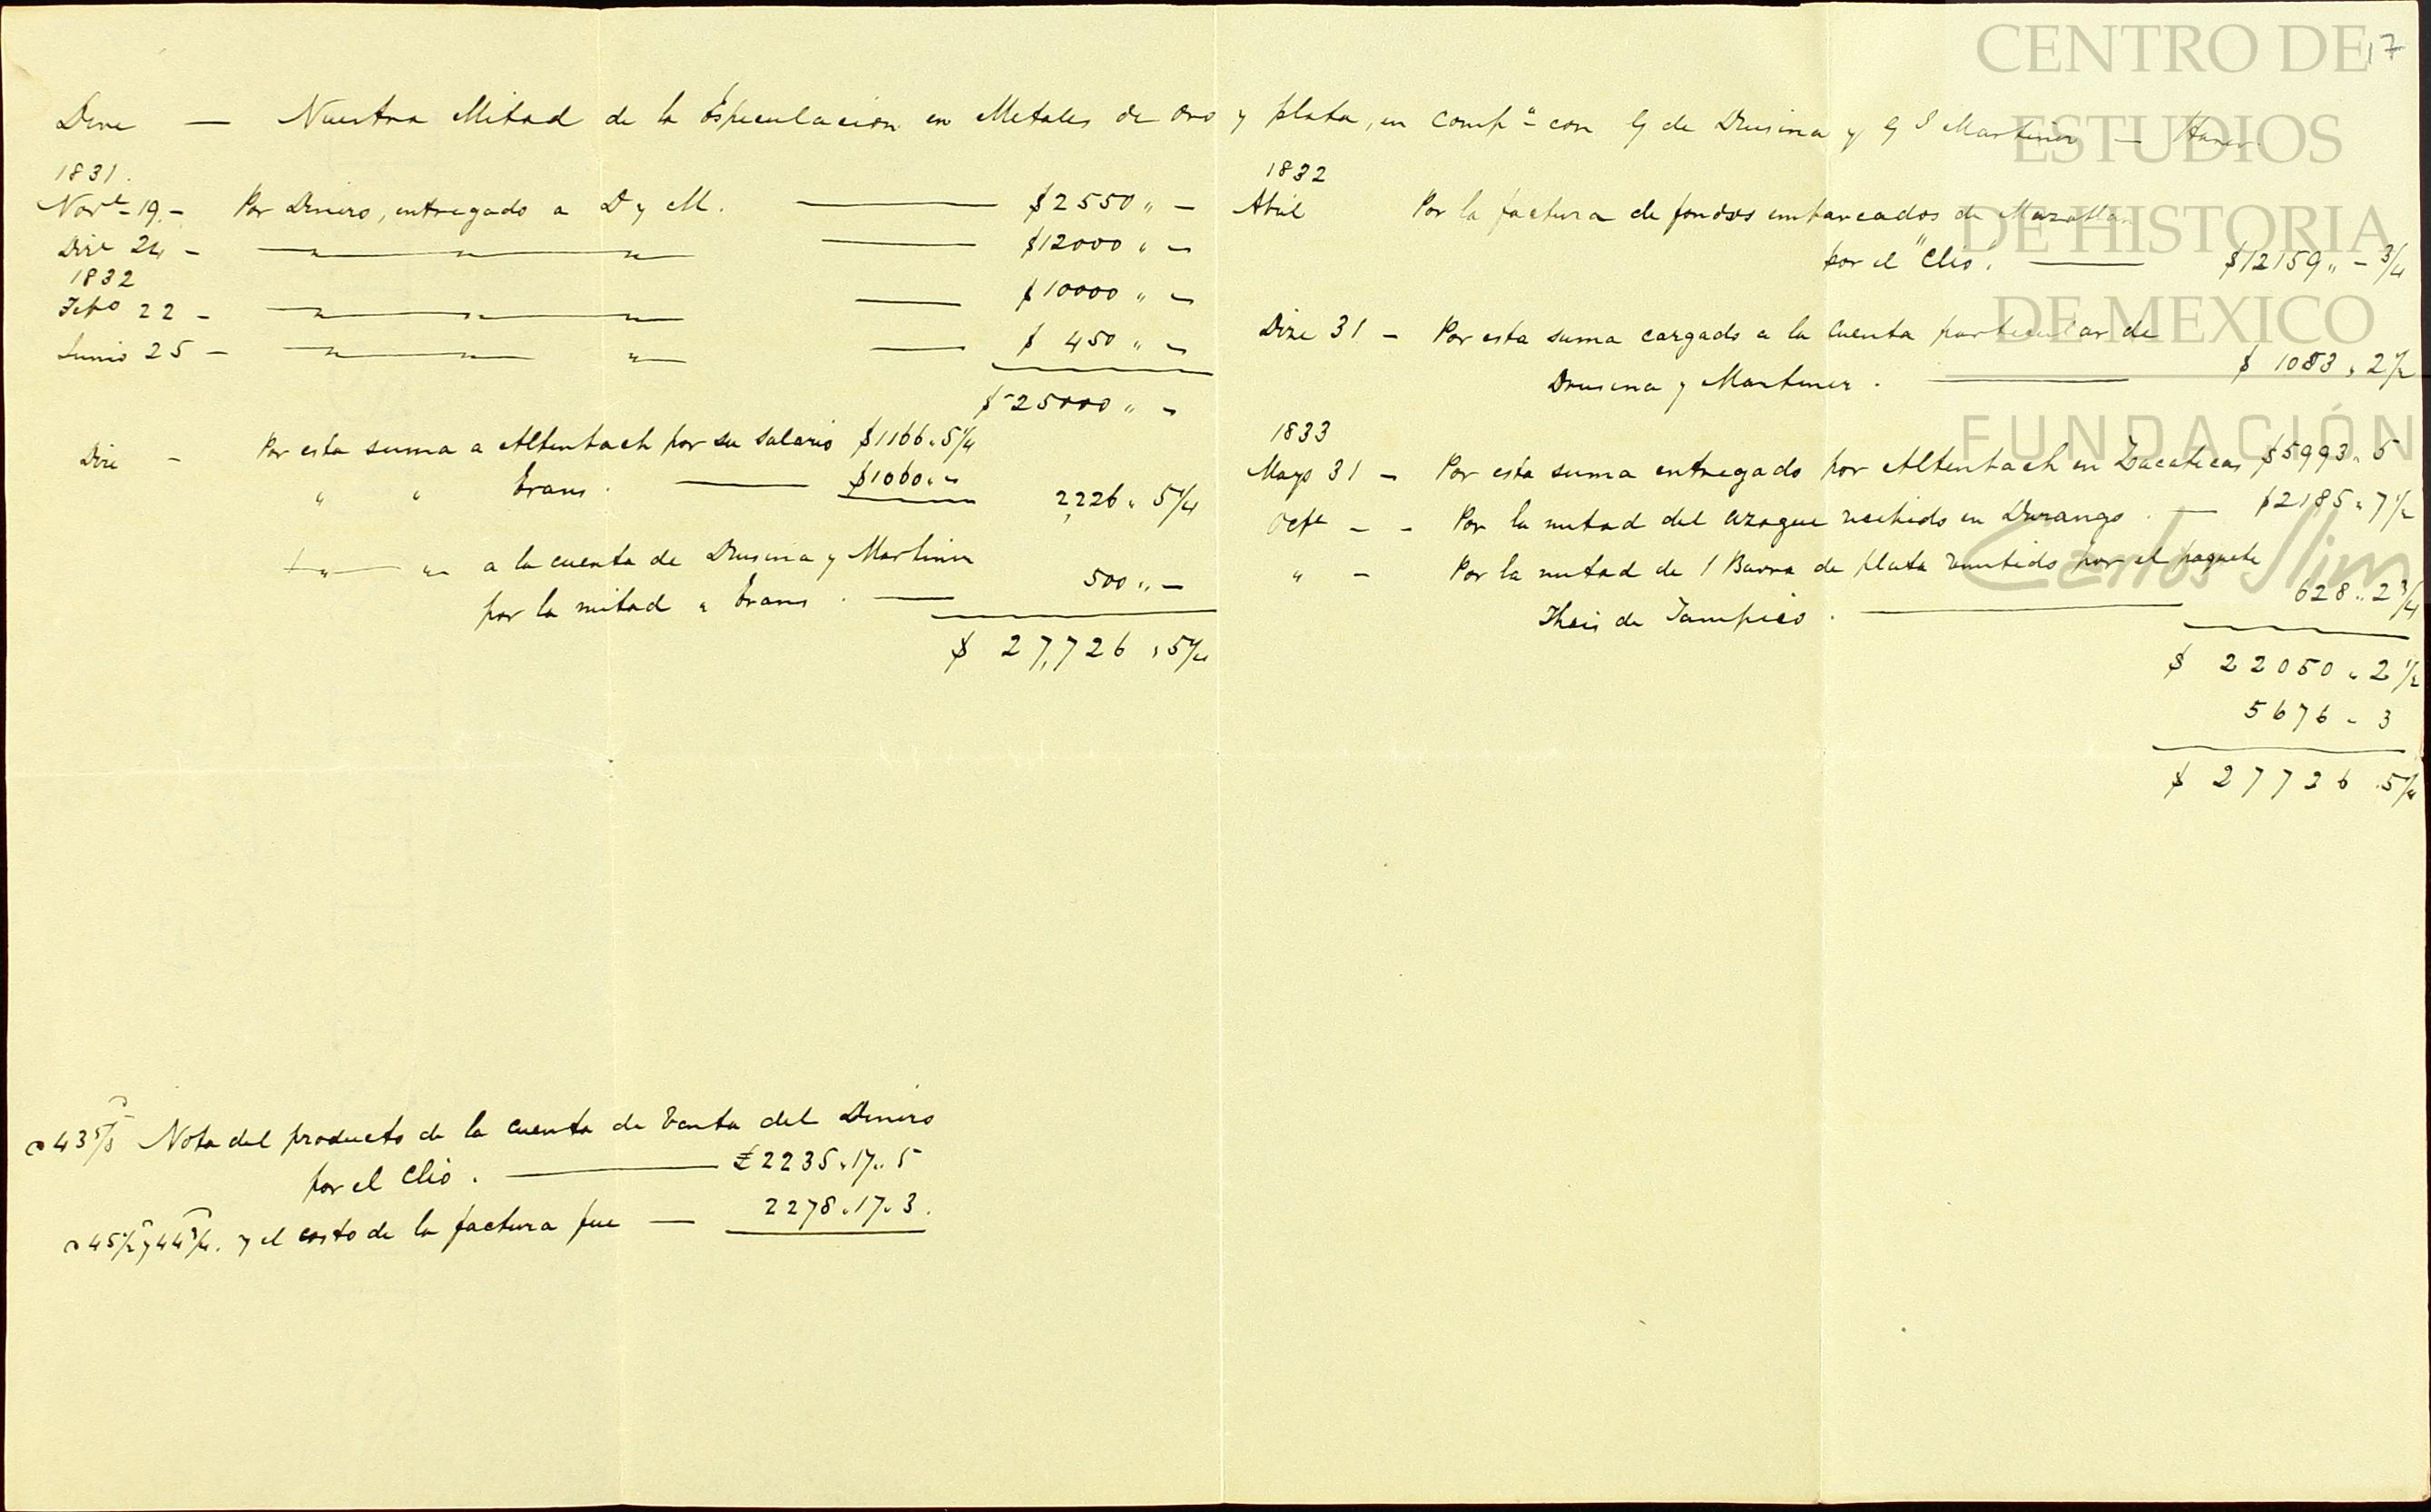 17
CENTRO DE
ESTUDIOS
DE HISTORIA
DE MEXICO
FUNDACIÓN
Carlos Slim
Deve — Nuestra Mitad de la Especulacion en Metales de oro y plata, en Compª con G de Drusina y G S Martinez — Haver.
1831.
Nove 19. — Por Dinero, entregado a D y M. — $2550 " —
Dixe 24 — " " " — $12000 " —
1832
Febo 22 — " " " — $10000 " —
Junio 25 — " " " — $ 450 " —
$ 25000 " —
Dixe — Por esta suma a Altenbach por su salario $1166 " 5 1/4
" " Evans. — $1060 " — 2,226 " 5 1/4
" " a la cuenta de Drusina y Martinez
por la mitad a Evans. — 500 " —
$ 27,726 " 5 1/4
1832
Abril Por la factura de fondos embarcados de Mazatlan
por el "Clio". — $12159 " — 3/4
Dixe 31 — Por esta suma cargado a la cuenta particular de
Drusina y Martinez. — $ 1083 " 2 1/2
1833
Mayo 31 — Por esta suma entregado por Altenbach en Zacatecas $5993 " 5
Octe — — Por la mitad del azogue recibido en Durango. — $2185 " 7 1/2
" — Por la mitad de 1 Barra de plata remitido por el paquete
de Tampico. — 628 " 2 3/4
$ 22050 " 2 1/2
5676 " 3
$ 27726 " 5 1/4
a 43 5/8 Nota del producto de la cuenta de Venta del Dinero
por el Clio. — £2235 " 17 " 5
a 45 1/2 y 44 3/4. y el costo de la factura fue — 2278 " 17 " 3.